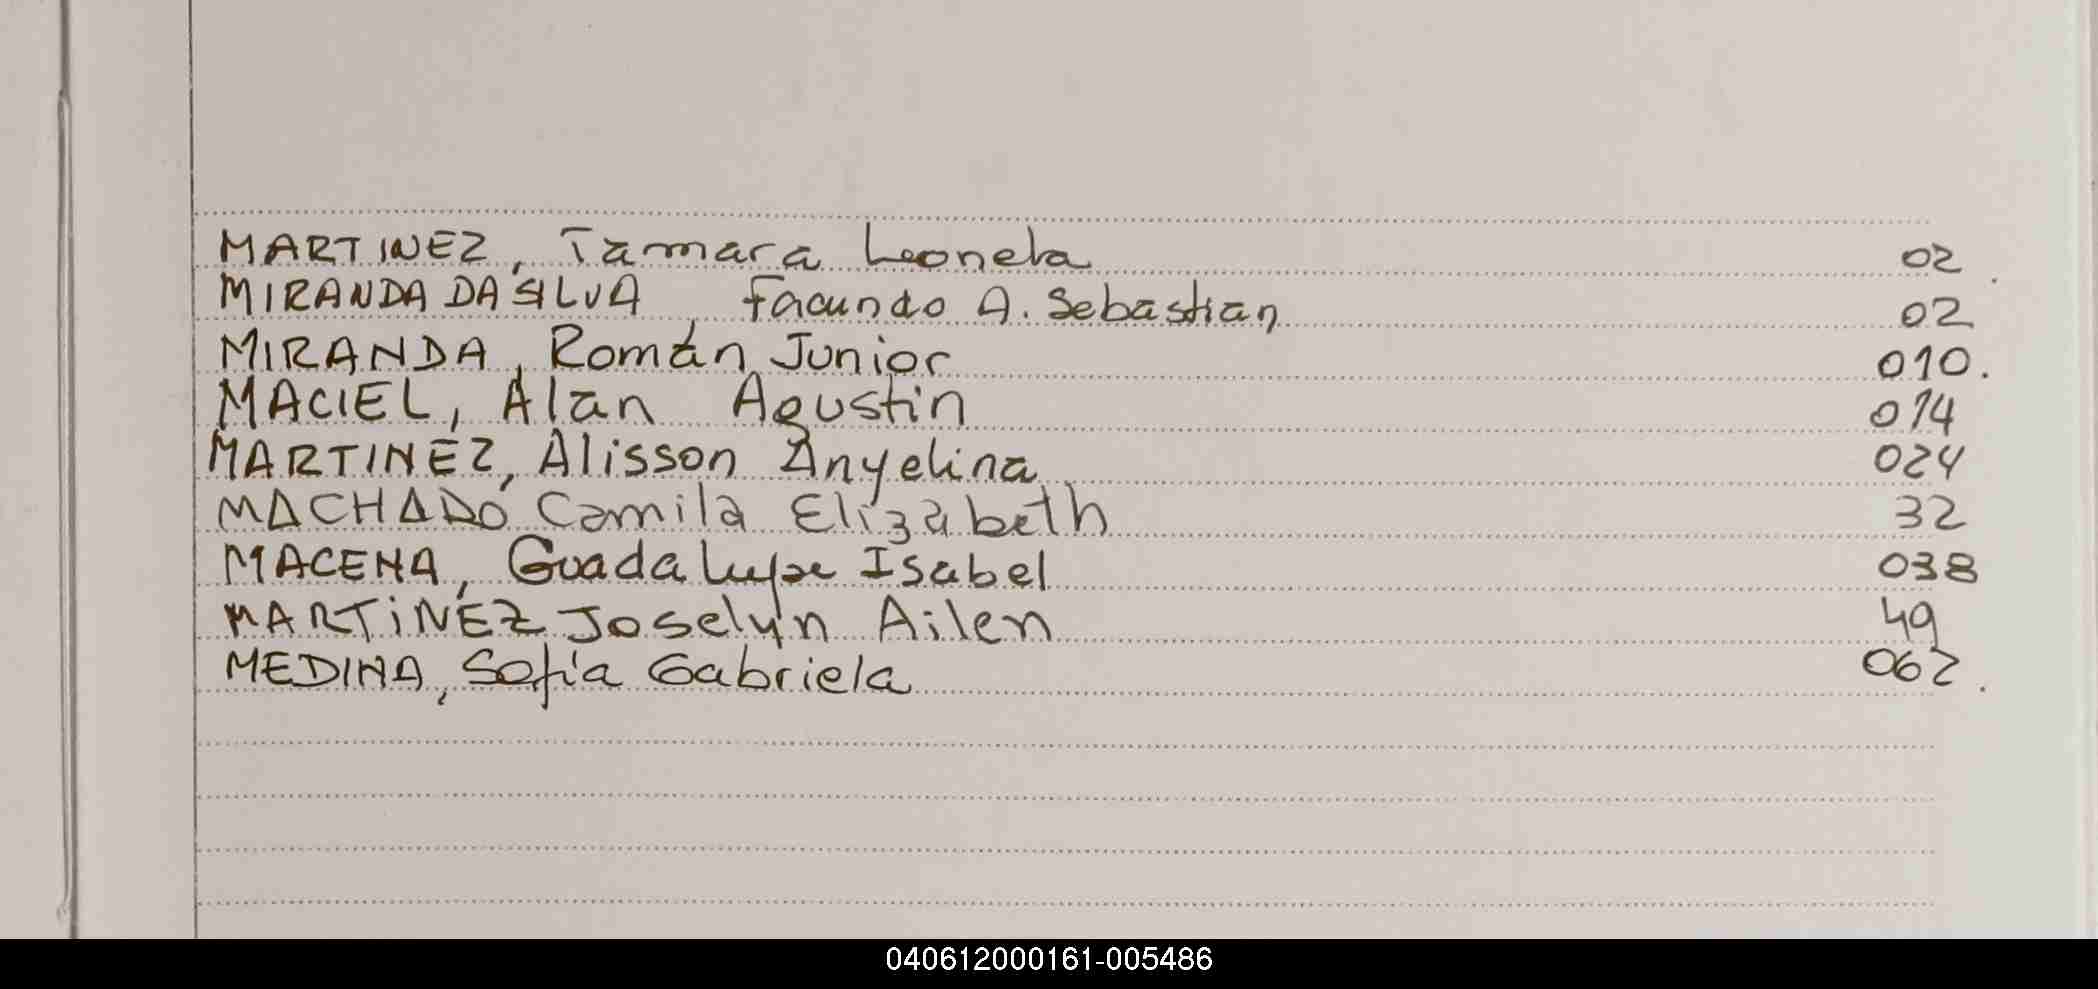 MARTINEZ, Tamara Leonela 02
MIRANDA DA SILVA, Facundo A. Sebastian 02
MIRANDA, Román Junior 010.
MACIEL, Alan Agustin 014
MARTINEZ, Alisson Anyelina 024
MACHADO Camila Elizabeth 32
MACENA, Guadalupe Isabel 038
MARTiNEZ Joselyn Ailen 49
MEDINA, Sofía Gabriela 062.
040612000161-005486